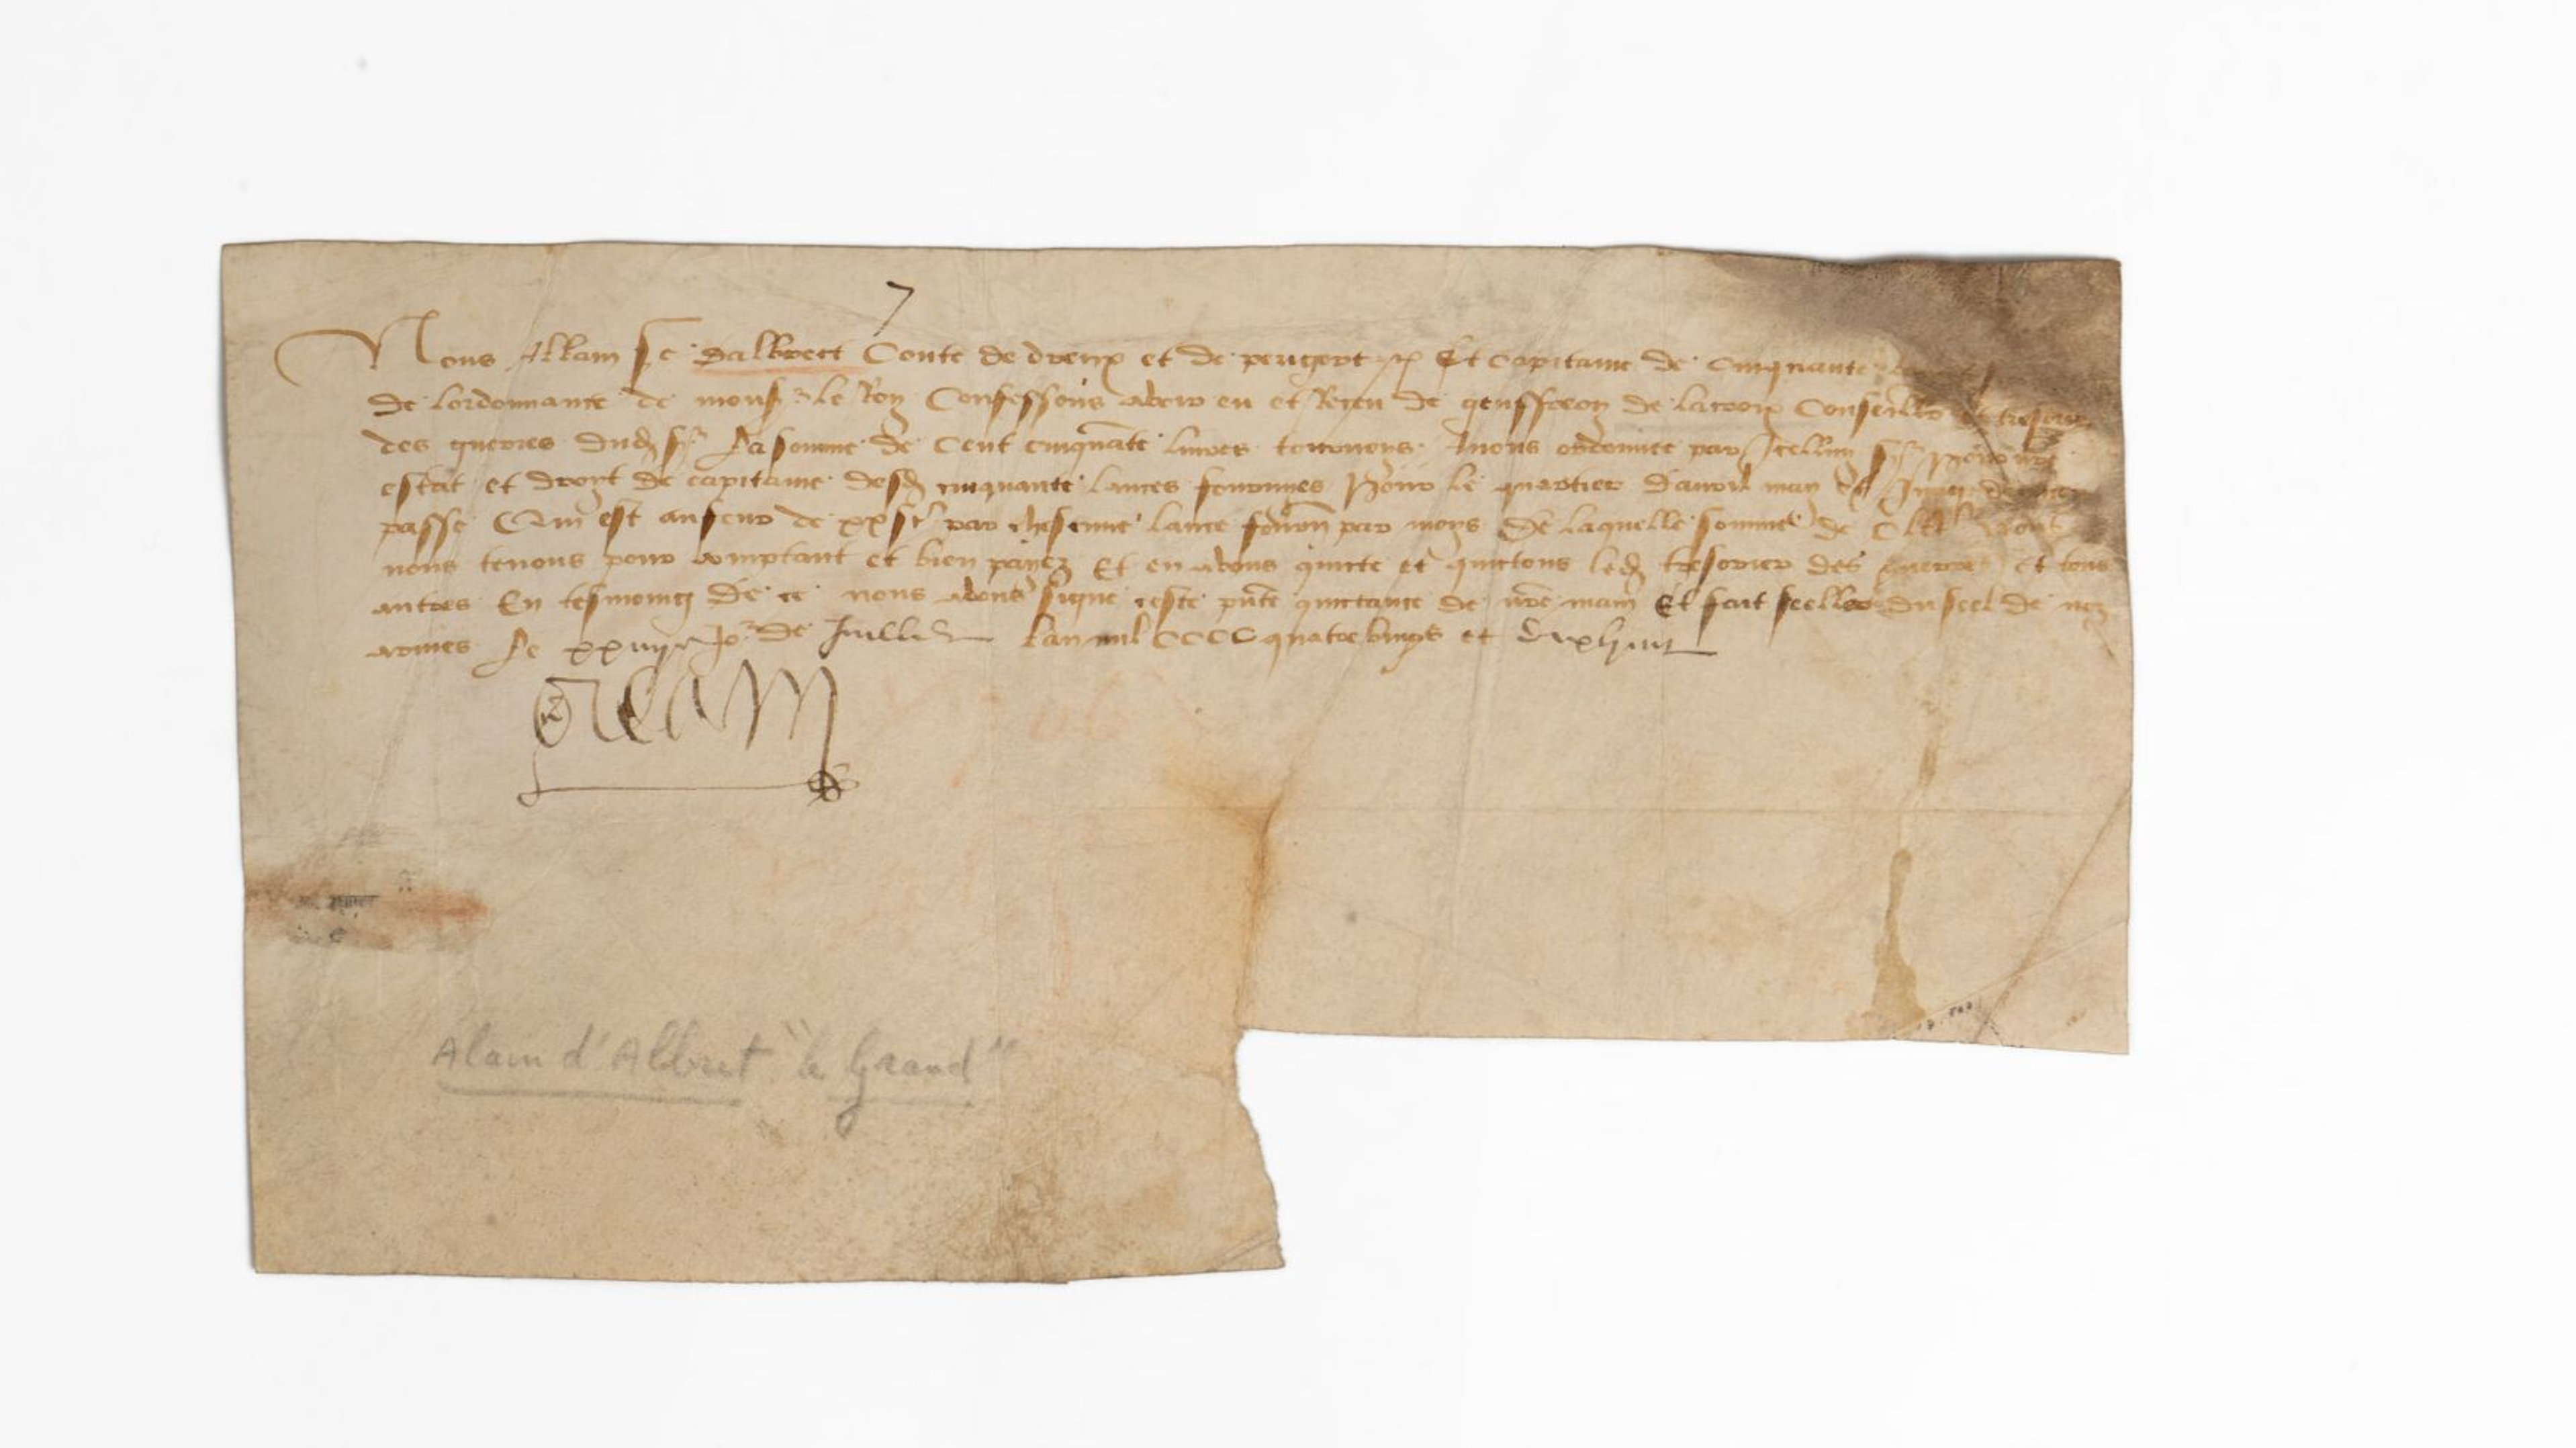 Nous Allain sr dalbret Conte de dreux et de perigort etc Et Capitaine de Cinquante
de lordonnance de monsr le Roy Confessons avoir eu et Receu de geuffroy de lacroix Conseiller et tresorier
des guerres dudit sr La somme de Cent cinquāte livres tournois Anous ordonnee par Icelluy sr Pour nre
estat et droit de capitaine desd cinquante lances fournies Pour le quartier davril may et Juing dernier
passe Qui est au feur de xx st par chescune lance fourn par moys De laquelle somme de CL lt Nous
nous tenons pour comptant et bien paiez Et en avons quicte et quictons led tresorier des guerres et tous
autres En tesmoing de ce nous avons signe ceste pnte quictance de nre main Et fait seeller du seel de noz
armes Le jor de Juillet Lan mil CCCC quatre vings et dixhuit
Alain d'Albret "le Grand"